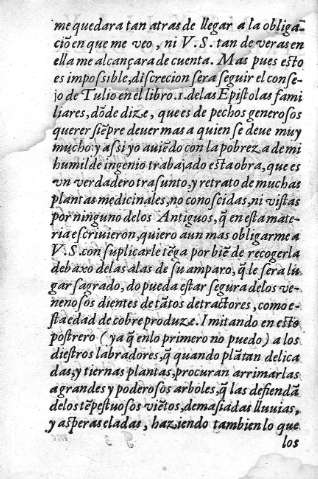 me quedara tan atras de llegar a la obliga-
ciõ en que me veo, ni V.S. tan de veras en
ella me alcançara de cuenta. Mas pues esto
es impossible, discrecion sera seguir el conse-
jo de Tulio en el libro.1.delas Epistolas fami
liares, dõde dize, que es de pechos generosos
querer siẽpre deuer mas a quien se deue muy
mucho: y assi yo auiẽdo con la pobreza de mi
humilde ingenio trabajado esta obra, que es
vn verdadero trasunto, y retrato de muchas
plantas medicinales, no conoscidas, ni vistas
por ninguno delos Antiguos, q̃ en esta mate-
ria escriuieron, quiero aun mas obligarme a
V.S. con suplicarle tẽga por biẽ de recogerla
debaxo de las alas de su amparo, q̃ le sera lu
gar sagrado, do pueda estar segura delos ve-
nenosos dientes de tãtos detractores, como e-
sta edad de cobre produze. Imitando en esto
postrero (ya q̃ en lo primero no puedo) a los
diestros labradores, q̃ quando plãtan delica
das, y tiernas plantas, procuran arrimarlas
a grandes y poderosos arboles, q̃ las defiendã
delos tẽpestuosos viẽtos, demasiadas lluuias,
y asperas eladas, haziendo tambien lo que
los